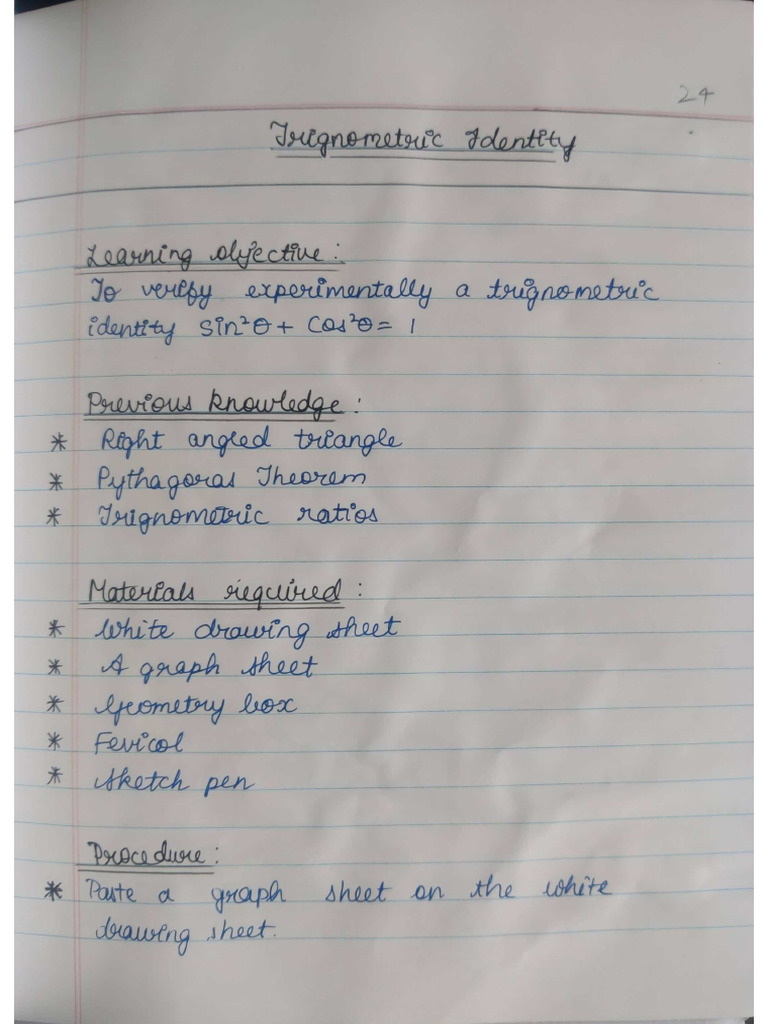 24
Trignometric Identity
Learning objective :
To verify experimentally a trignometric
identity sin²θ + cos²θ = 1
Previous knowledge :
* Right angled triangle
* Pythagoras Theorem
* Trignometric ratios
Materials required :
* White drawing sheet
* A graph sheet
* Geometry box
* Fevicol
* Sketch pen
Procedure :
* Paste a graph sheet on the white
drawing sheet.